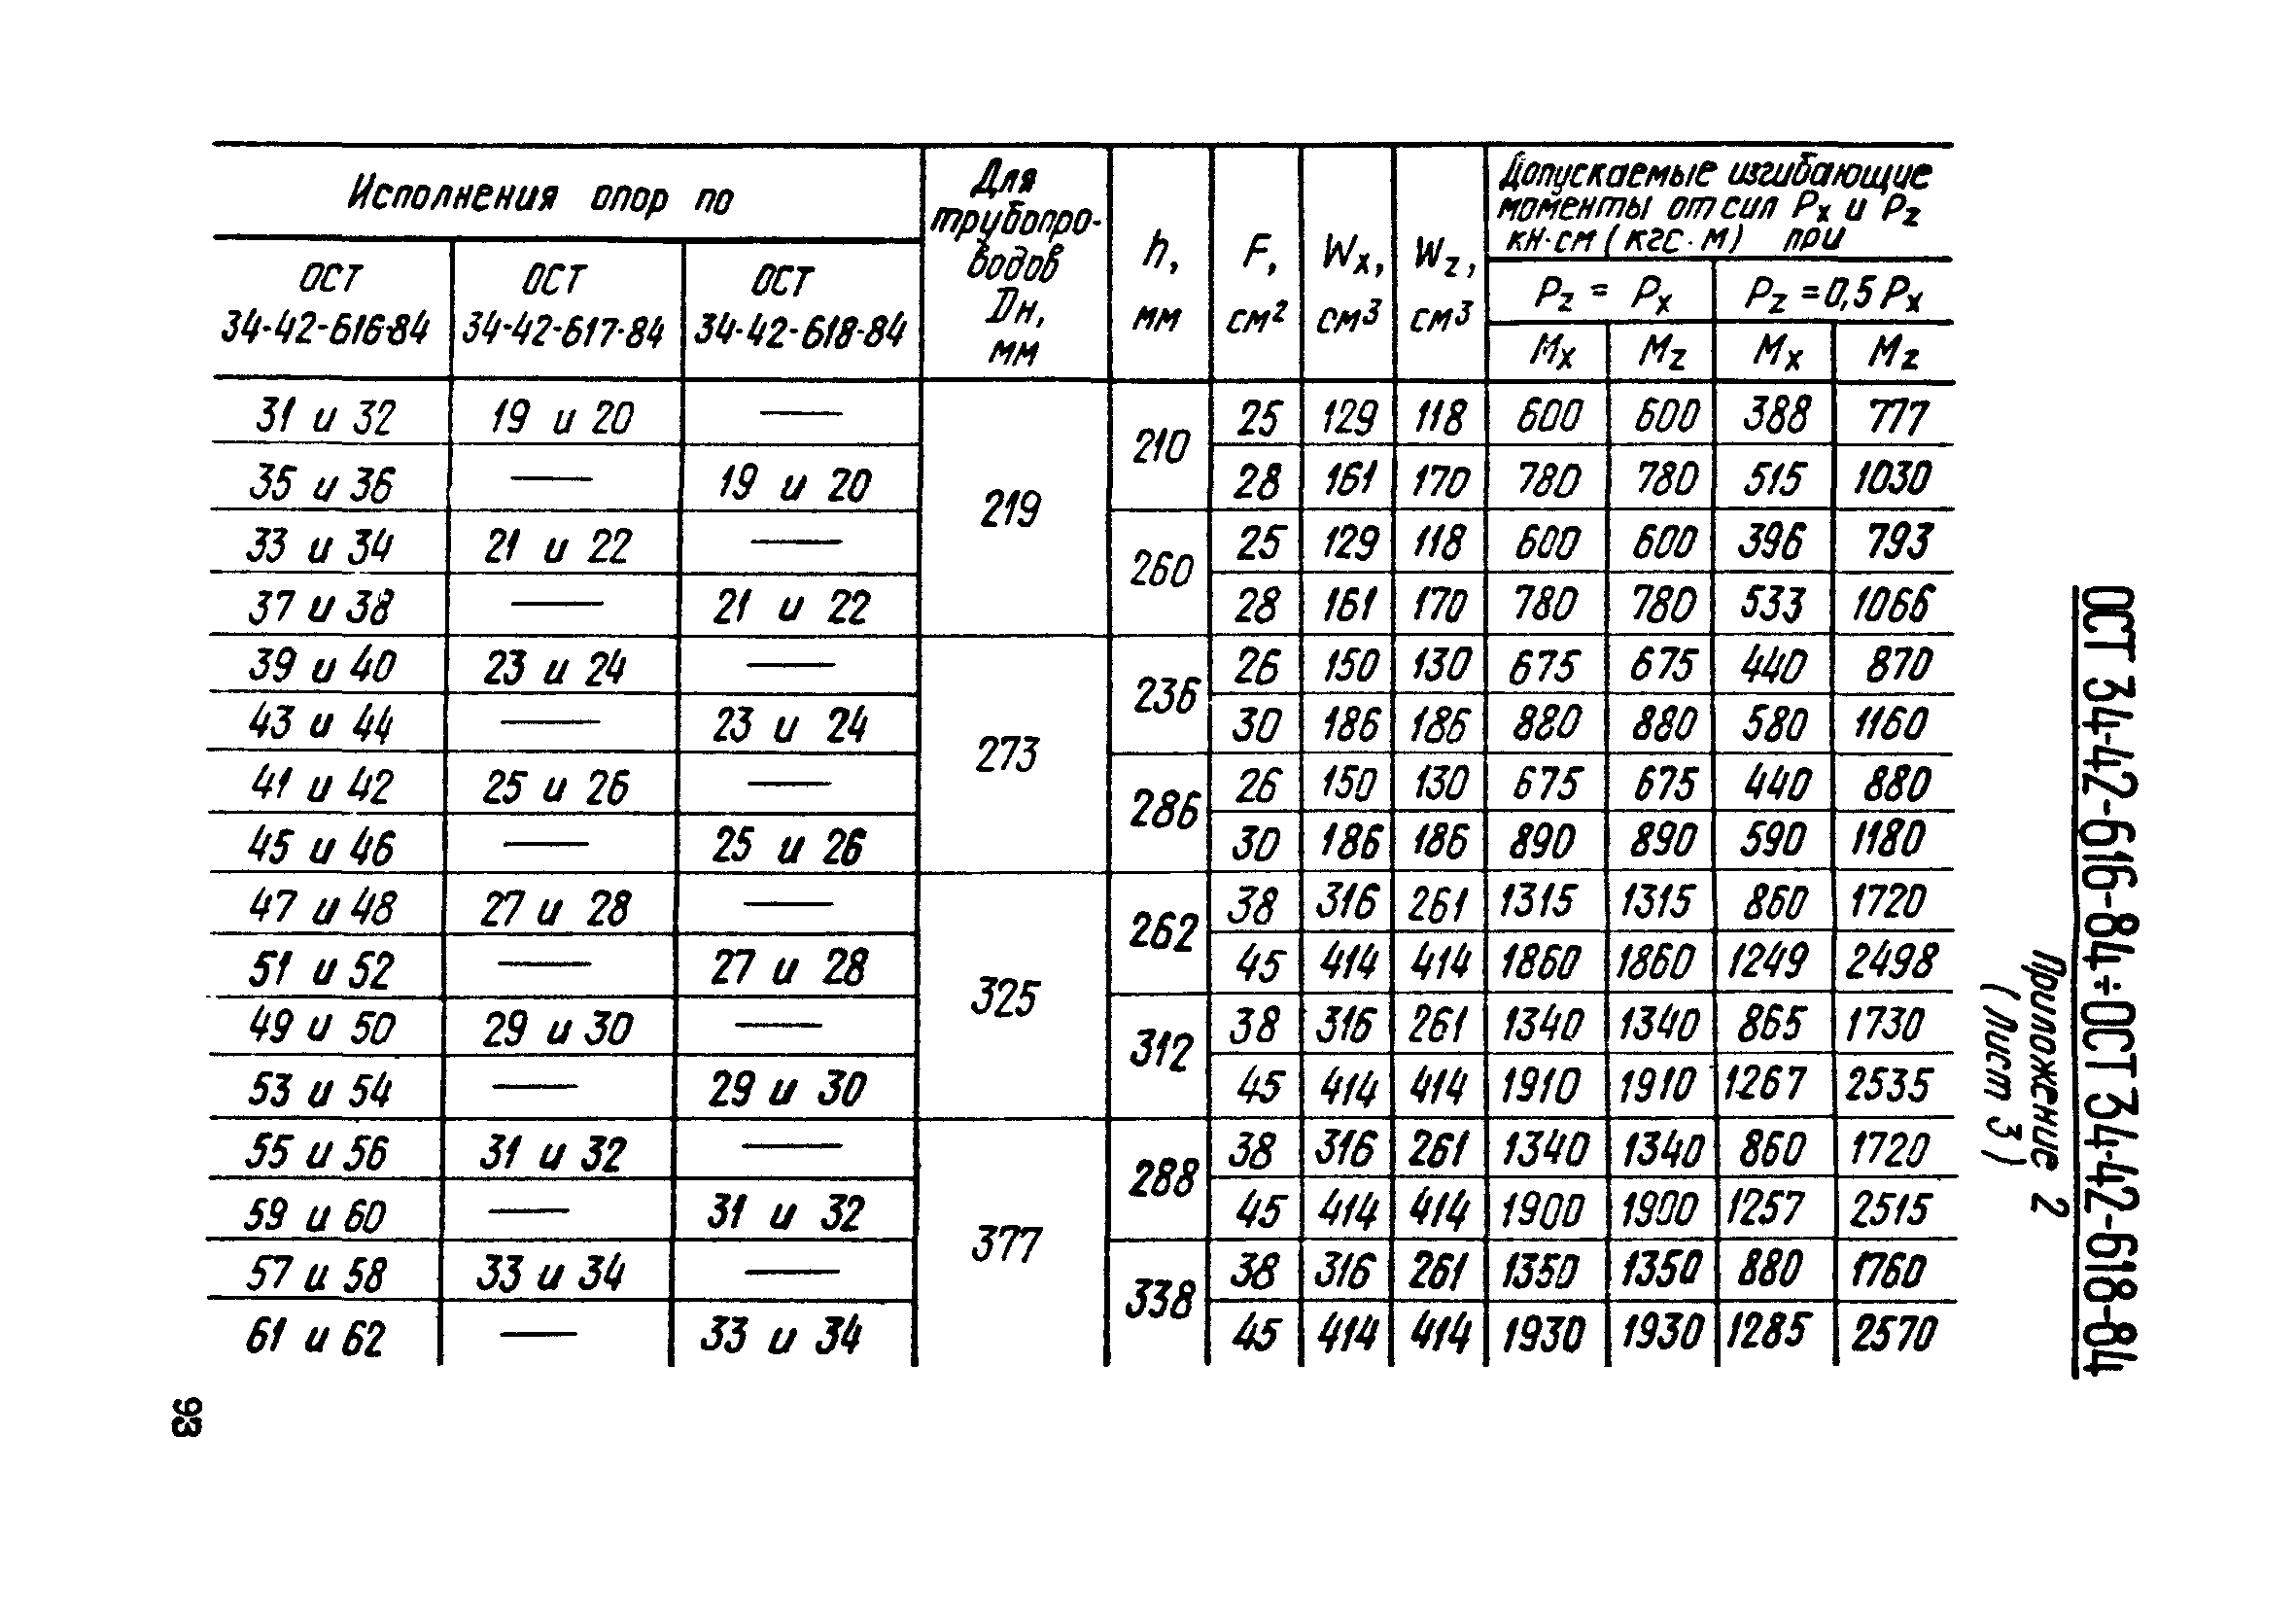 Исполнения опор по
ОСТ 34-42-616-84
ОСТ 34-42-617-84
ОСТ 34-42-618-84
Для трубопро-
водов
Dн,
мм
h, мм
F, см²
Wx, см³
Wz, см³
Допускаемые изгибающие
моменты от сил Px и Pz
кН·см (кгс·м) при
Pz = Px
Pz = 0,5 Px
Mx Mz Mx Mz
31 и 32 19 и 20 — 219 210 25 129 118 600 600 388 777
35 и 36 — 19 и 20 28 161 170 780 780 515 1030
33 и 34 21 и 22 — 260 25 129 118 600 600 396 793
37 и 38 — 21 и 22 28 161 170 780 780 533 1066
39 и 40 23 и 24 — 273 236 26 150 130 675 675 440 870
43 и 44 — 23 и 24 30 186 186 880 880 580 1160
41 и 42 25 и 26 — 286 26 150 130 675 675 440 880
45 и 46 — 25 и 26 30 186 186 890 890 590 1180
47 и 48 27 и 28 — 325 262 38 316 261 1315 1315 860 1720
51 и 52 — 27 и 28 45 414 414 1860 1860 1249 2498
49 и 50 29 и 30 — 312 38 316 261 1340 1340 865 1730
53 и 54 — 29 и 30 45 414 414 1910 1910 1267 2535
55 и 56 31 и 32 — 377 288 38 316 261 1340 1340 860 1720
59 и 60 — 31 и 32 45 414 414 1900 1900 1257 2515
57 и 58 33 и 34 — 338 38 316 261 1350 1350 880 1760
61 и 62 — 33 и 34 45 414 414 1930 1930 1285 2570
ОСТ 34-42-616-84÷ОСТ 34-42-618-84
Приложение 2
(Лист 3)
93